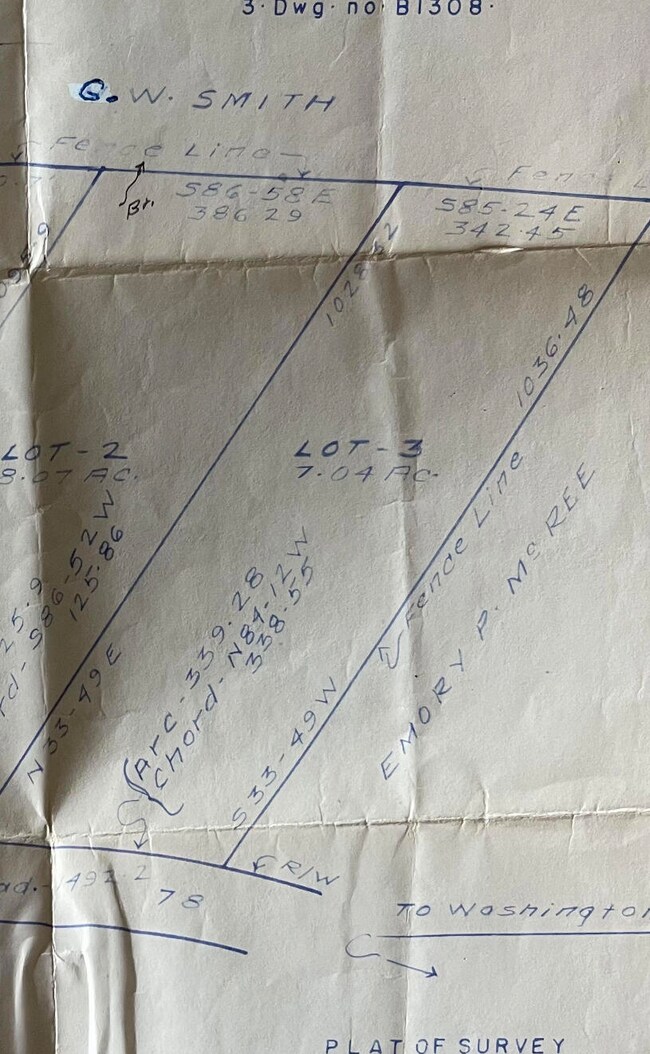 3. Dwg. no. B1308.
G. W. SMITH
Fence Line
Fence L
Br.
S86-58E
386.29
S85-24E
342.45
1028.52
1036.48
LOT-2
8.07 AC.
LOT-3
7.04 AC.
25.9
rd-S86-52W
125.86
Arc-339.28
Chord-N84-12W
338.55
Fence Line
EMORY P. McREE
N33-49E
S33-49W
R/W
ad.-492.2
78
To Washington
PLAT OF SURVEY